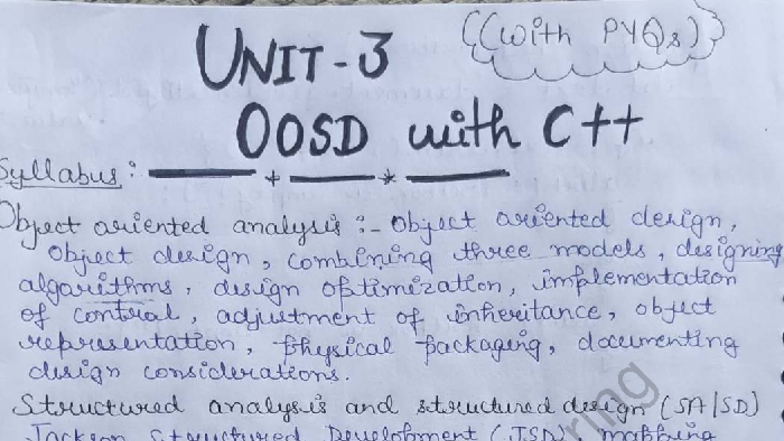 ((With PYQs))
UNIT-3
OOSD with C++
Syllabus:
Object oriented analysis :- Object oriented design,
Object design, combining three models, designing
algorithms, design optimization, implementation
of control, adjustment of inheritance, object
representation, physical packaging, documenting
design considerations.
Structured analysis and structured design (SA|SD)
Jackson Structured Development (JSD), mapping
ring